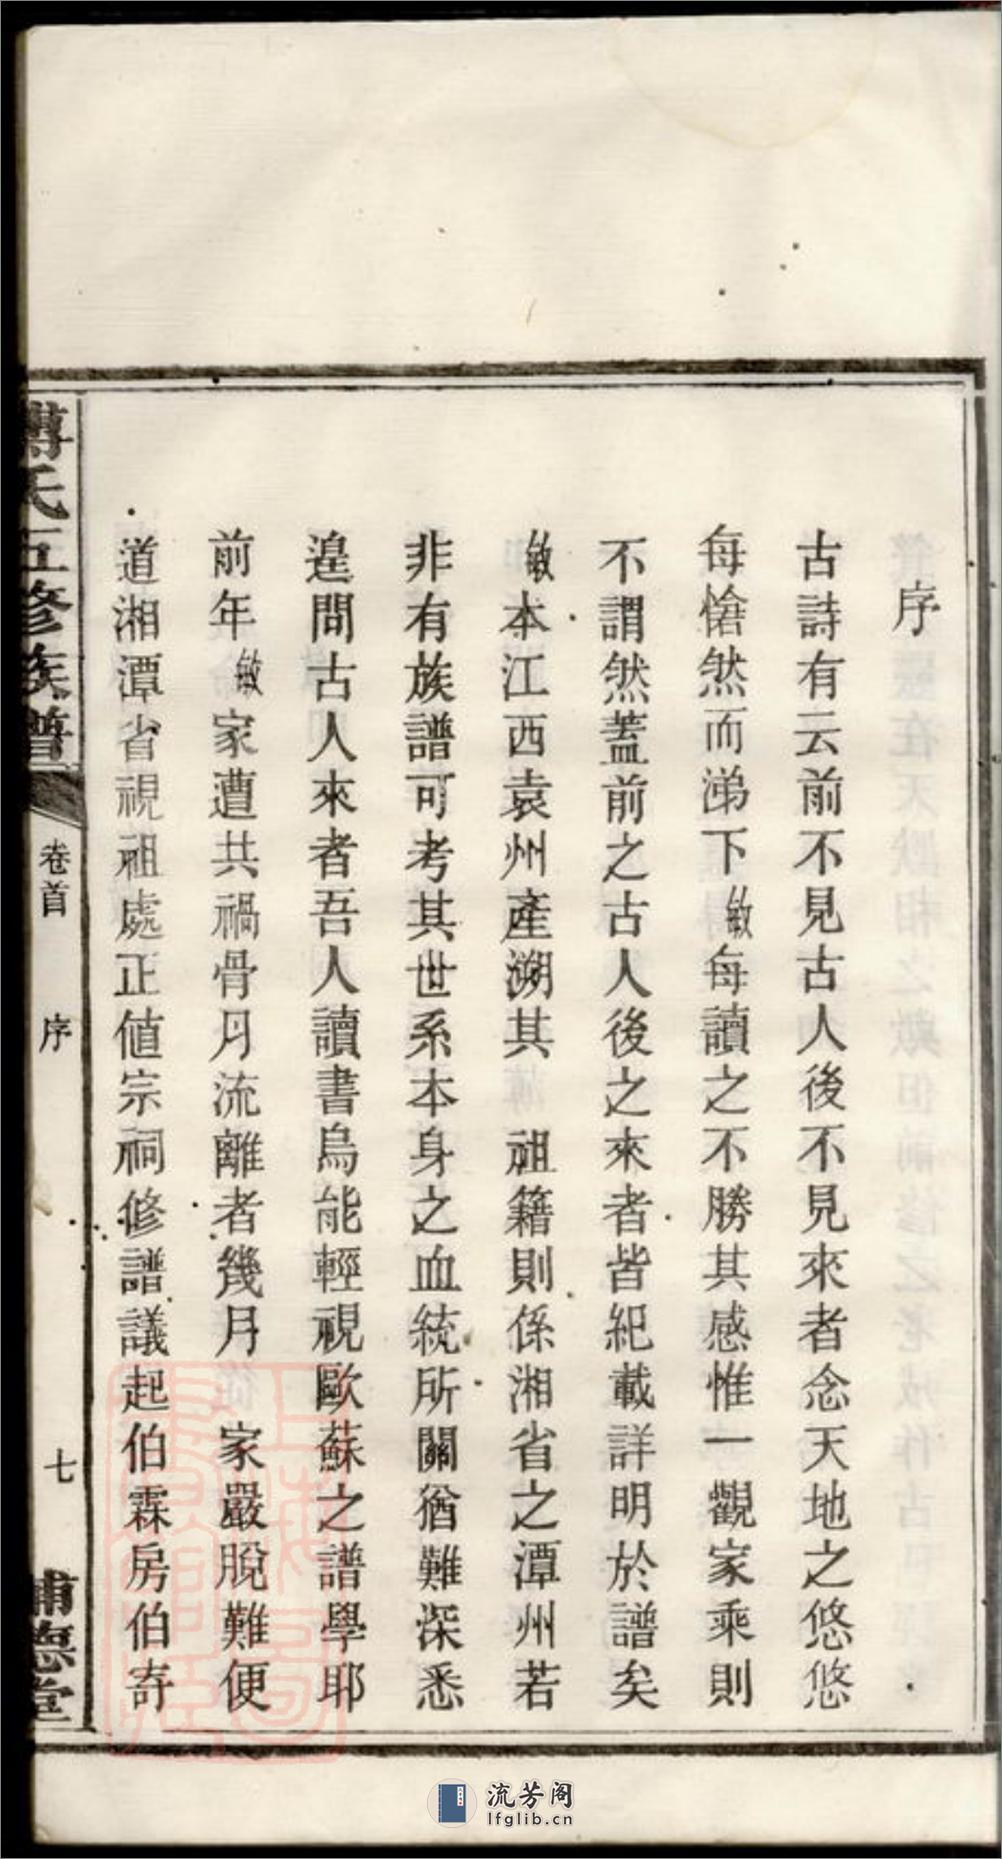 序
古詩有云前不見古人後不見來者念天地之悠悠
每愴然而涕下敏每讀之不勝其感惟一觀家乘則
不謂然蓋前之古人後之來者皆紀載詳明於譜矣
敏本江西袁州產溯其 祖籍則係湘省之潭州若
非有族譜可考其世系本身之血統所關猶難深悉
遑問古人來者吾人讀書烏能輕視歐蘇之譜學耶
前年敏家遭共禍骨月流離者幾月 家嚴脫難便
道湘潭省視祖處正值宗祠修譜議起伯霖房伯寄
傅氏五修族譜
卷首 序
七
流芳阁
lfglib.cn